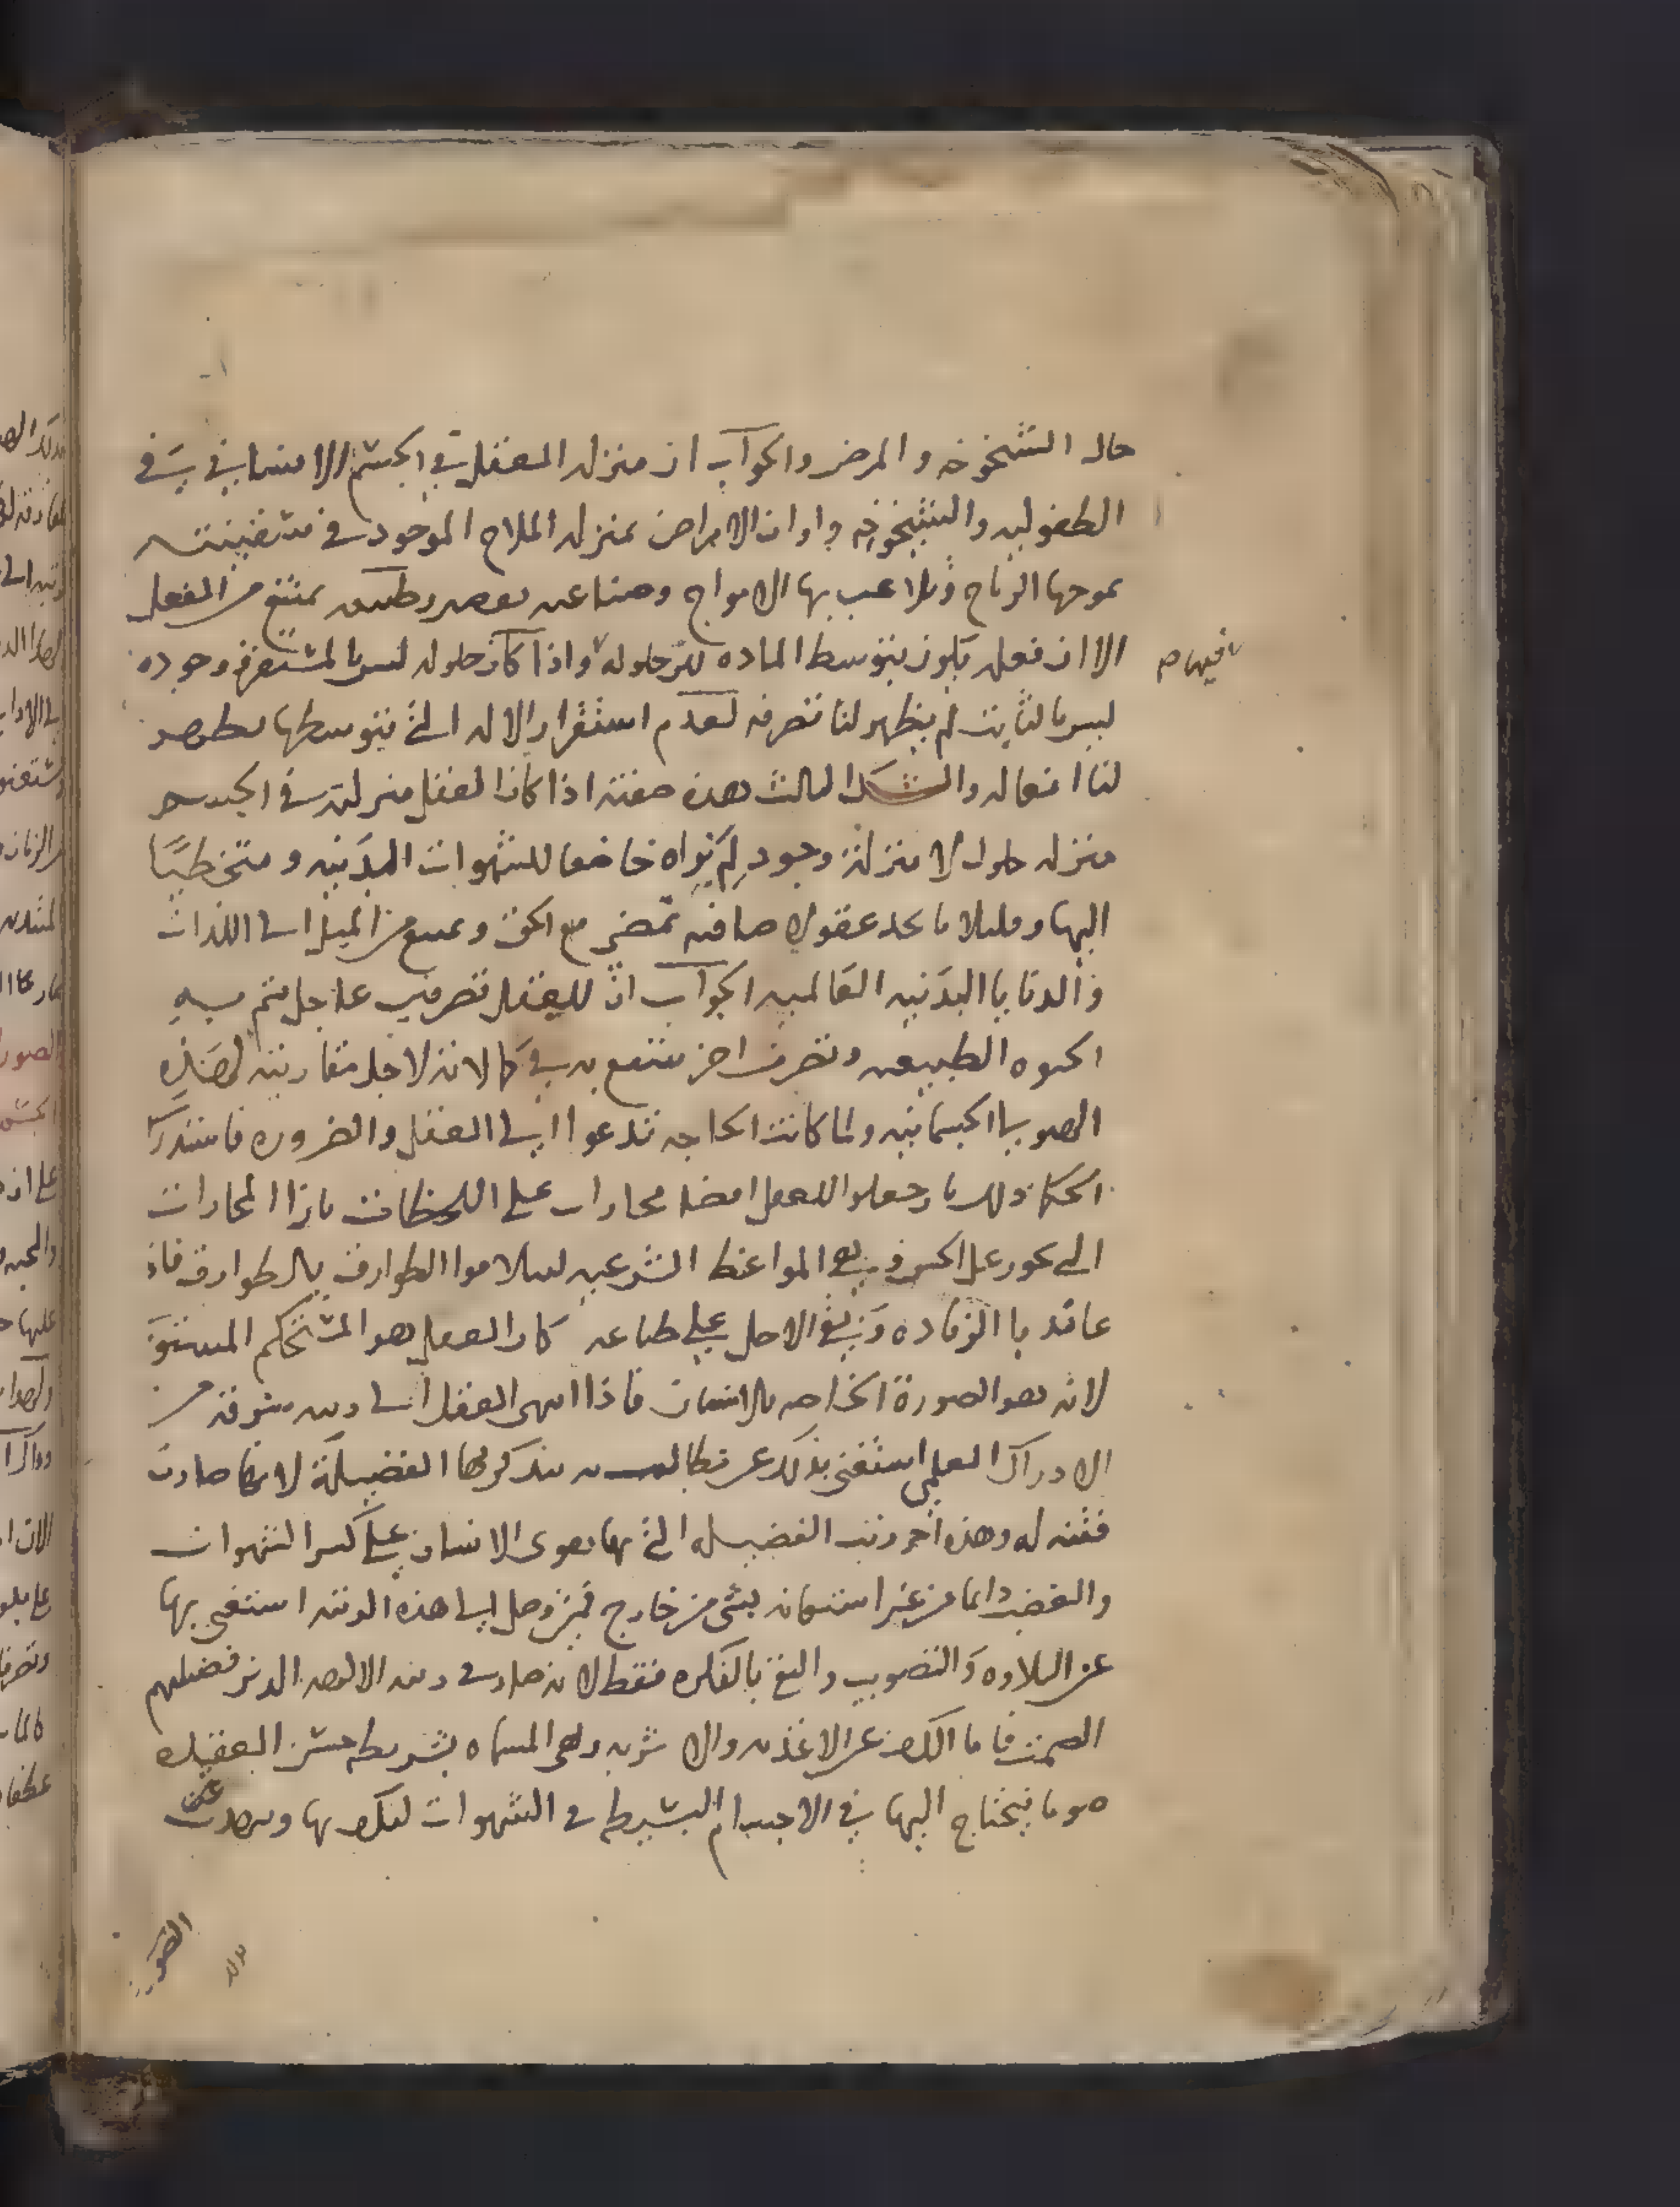 حال الشيخوخه والمرض والجوآب ان منزله العقل في الجسم الانساني في
الطفوليه والشيخوخه واوان الامراض بمنزله الملاح الموجود في سفينته
تموجها الرياح وتلاعب بها الامواج وصناعته تمتنع من الفعل
الا ان فعله يكون بتوسط الماده لحلوله واذا كان حلوله ليس بالمستعر وجوده
فيها ص
ليس بالثابت لم يظهر لنا تصرفه لعدم استقرار الاله التي بتوسطها تظهر
لنا افعاله والشك الثالث هذه صفته اذا كان العقل منزلته في الجسم
منزله حلول لا منزلة وجود لِم نراه خاضعا للشهوات البدَنيه ومتخطيًا
اليها وقليلا ما نجد عقولا صافيه تمضي مع الحق وتمتنع من الميل الى اللذات
والدنايا البدَنيه العَالميه الجوآب انّ للعقل تصرفين عاجل تتم به
الحيوه الطبيعيه وتصرف اخر ينتفع به في كمالاته لاجل مقارنته لهَذِهِ
الصوره الجسمانيه ولما كانت الحاجه تدعوا الى العقل والضروره فاستدرك
الحكما ذلك بان جعلوا للعقل ايضا مجازات على اللحظات بازا المجازات
التي تجوز على الحس وهي المواعظ الشرعيه ليلاموا الطوارق بالطوارق فاذ
عاند با الزياده وَبقي الاصل على طباعه كان العقل هو المستحكم المستوَ
لانه هو الصورة الخاصه بالانسان فاذا انتهى العقل الى رتبه شرفه من
الادراك العلمي استغنى بذلك عن مطالبته بتذكرها الفضيلة لانها صارت
قنيته له وهذه اخر رتب الفضيله التي بها يقوى الانسان على كسر الشهوات
والغضب دايما من غير استعانه بشي من خارج فمن وصل الى هذه الرتبه استغنى بها
عن التلاوه وَالتصويب والنغ بالفكره فقط لانه صار في رتبه الالهه الذين فضيلتهم
الصمت فاما الكف عن الاغذيه والاشربه وهي المسماه بشريطه حسن العقيله
صوما فيحتاج اليها في الاجسام البشريه في الشهوات لتكف بها وتصدف عن
الصور